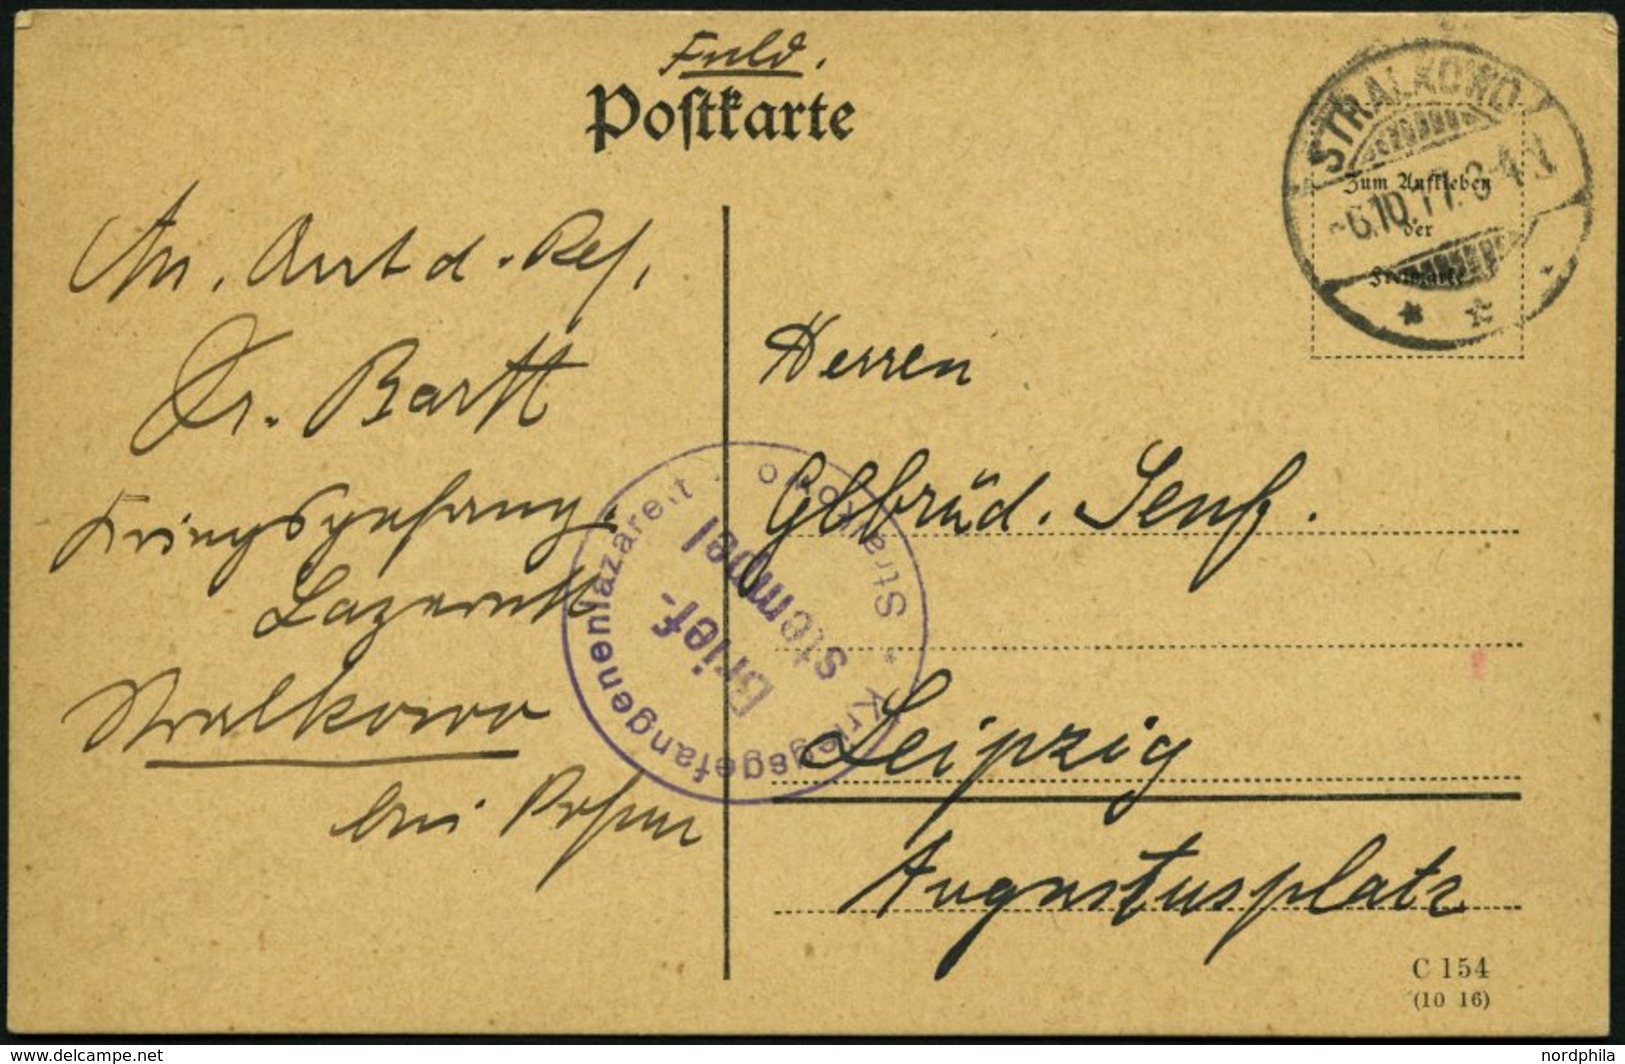 Feld.
Postkarte
STRALKOWO
-6.10.17. 3-4 N
Zum Aufkleben
der
Freimarke
An. Arzt d. Res.
Dr. Bartt
Kriegsgefang.
Lazarett
Stralkowo
bei Posen
Kriegsgefangenenlazarett · Stralkowo *
Brief-
stempel
Herren
Gebrüd. Senf.
Leipzig
Augustusplatz
C 154
(10 16)
www.delcampe.net
nordphila